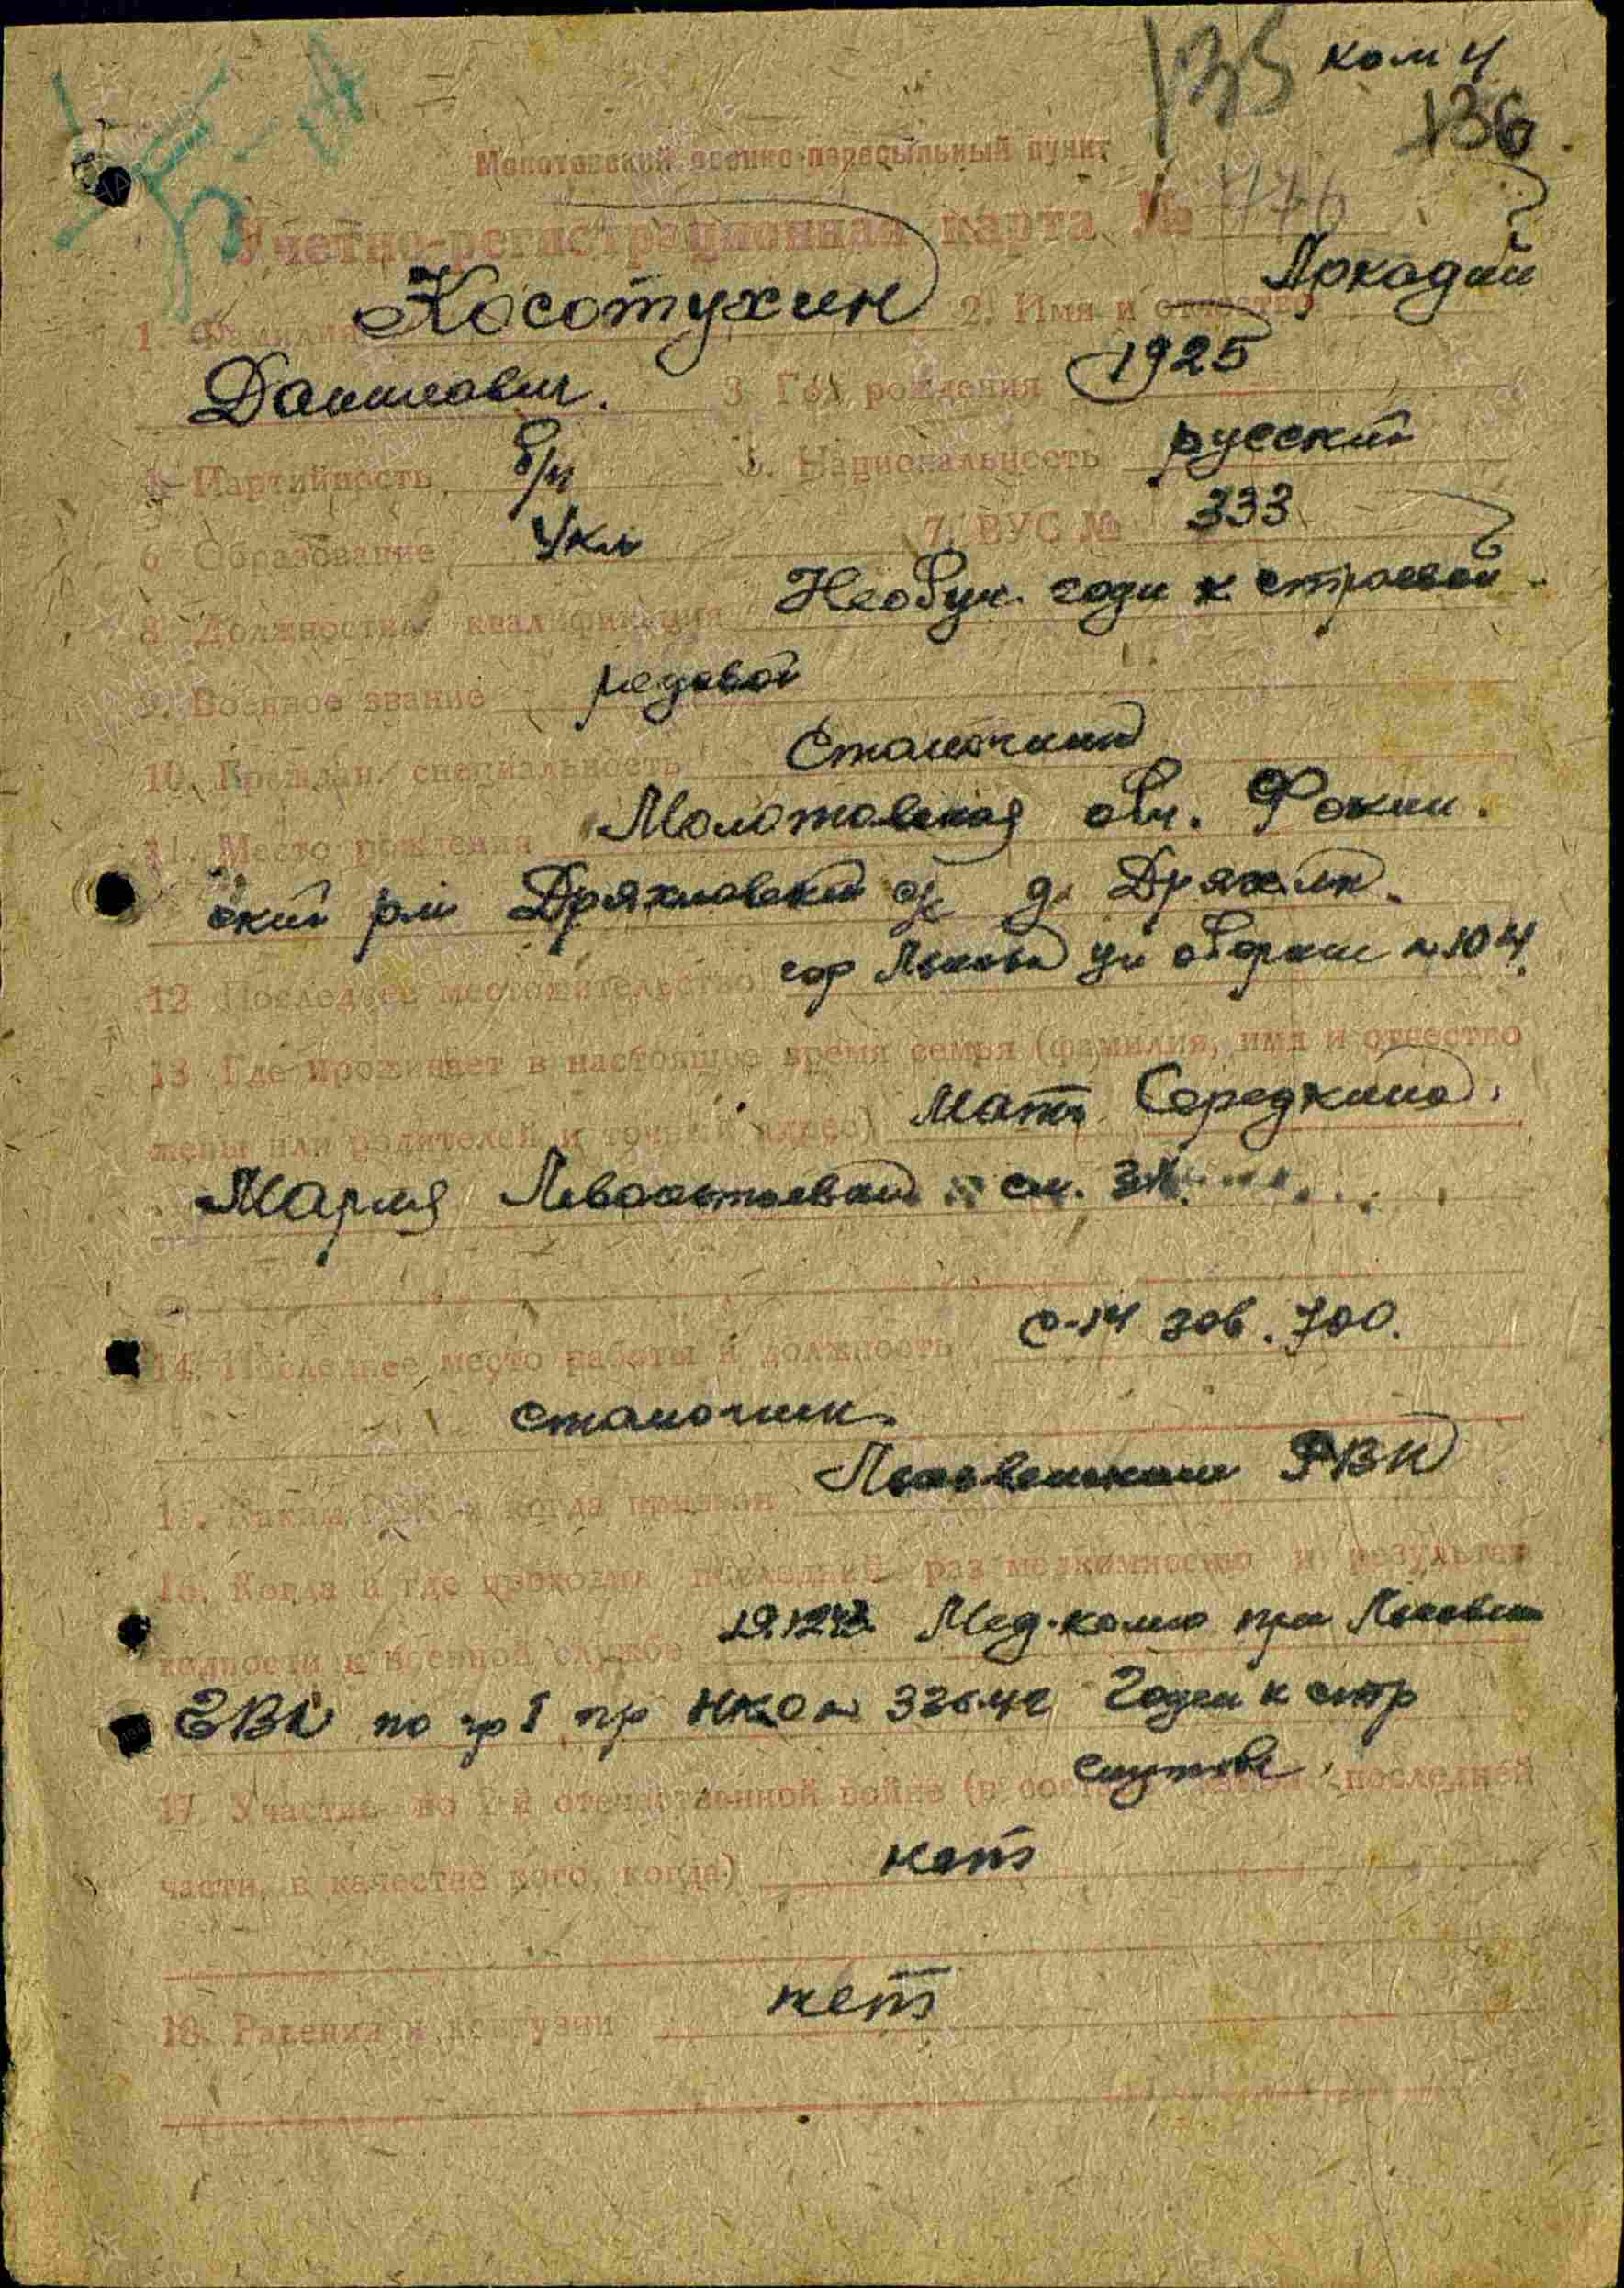 135 ком 4
136
Молотовский военно-пересыльный пункт
Учетно-регистрационная карта № 776
1. Фамилия Косотухин 2. Имя и отчество Аркадий
Данилович. 3. Год рождения 1925
4. Партийность б/п 5. Национальность русский
6. Образование 4 кл 7. ВУС № 333
8. Должностная квалификация Необуч. годн к строевой
9. Военное звание рядовой
10. Граждан. специальность Станочник
11. Место рождения Молотовская обл. Фокин.
ский р-н Дряхловский с/с д.
12. Последнее местожительство гор Лысьва ул №104
13. Где проживает в настоящее время семья (фамилия, имя и отчество
жены или родителей и точный адрес) Мать Середкина
Мария см.
14. Последнее место работы и должность зав. 700.
станочник.
15. Каким РВК и когда призван Лысьвенским РВК
16. Когда и где проходил последний раз медкомиссию и результат
годности к военной службе Мед. комис при Лысьвен
ГВК по гр I пр НКО № 336.42 Годен к стр
службе
17. Участие во 2-й отечественной войне (в последней
части, в качестве кого, когда) нет
18. Ранения и контузии нет